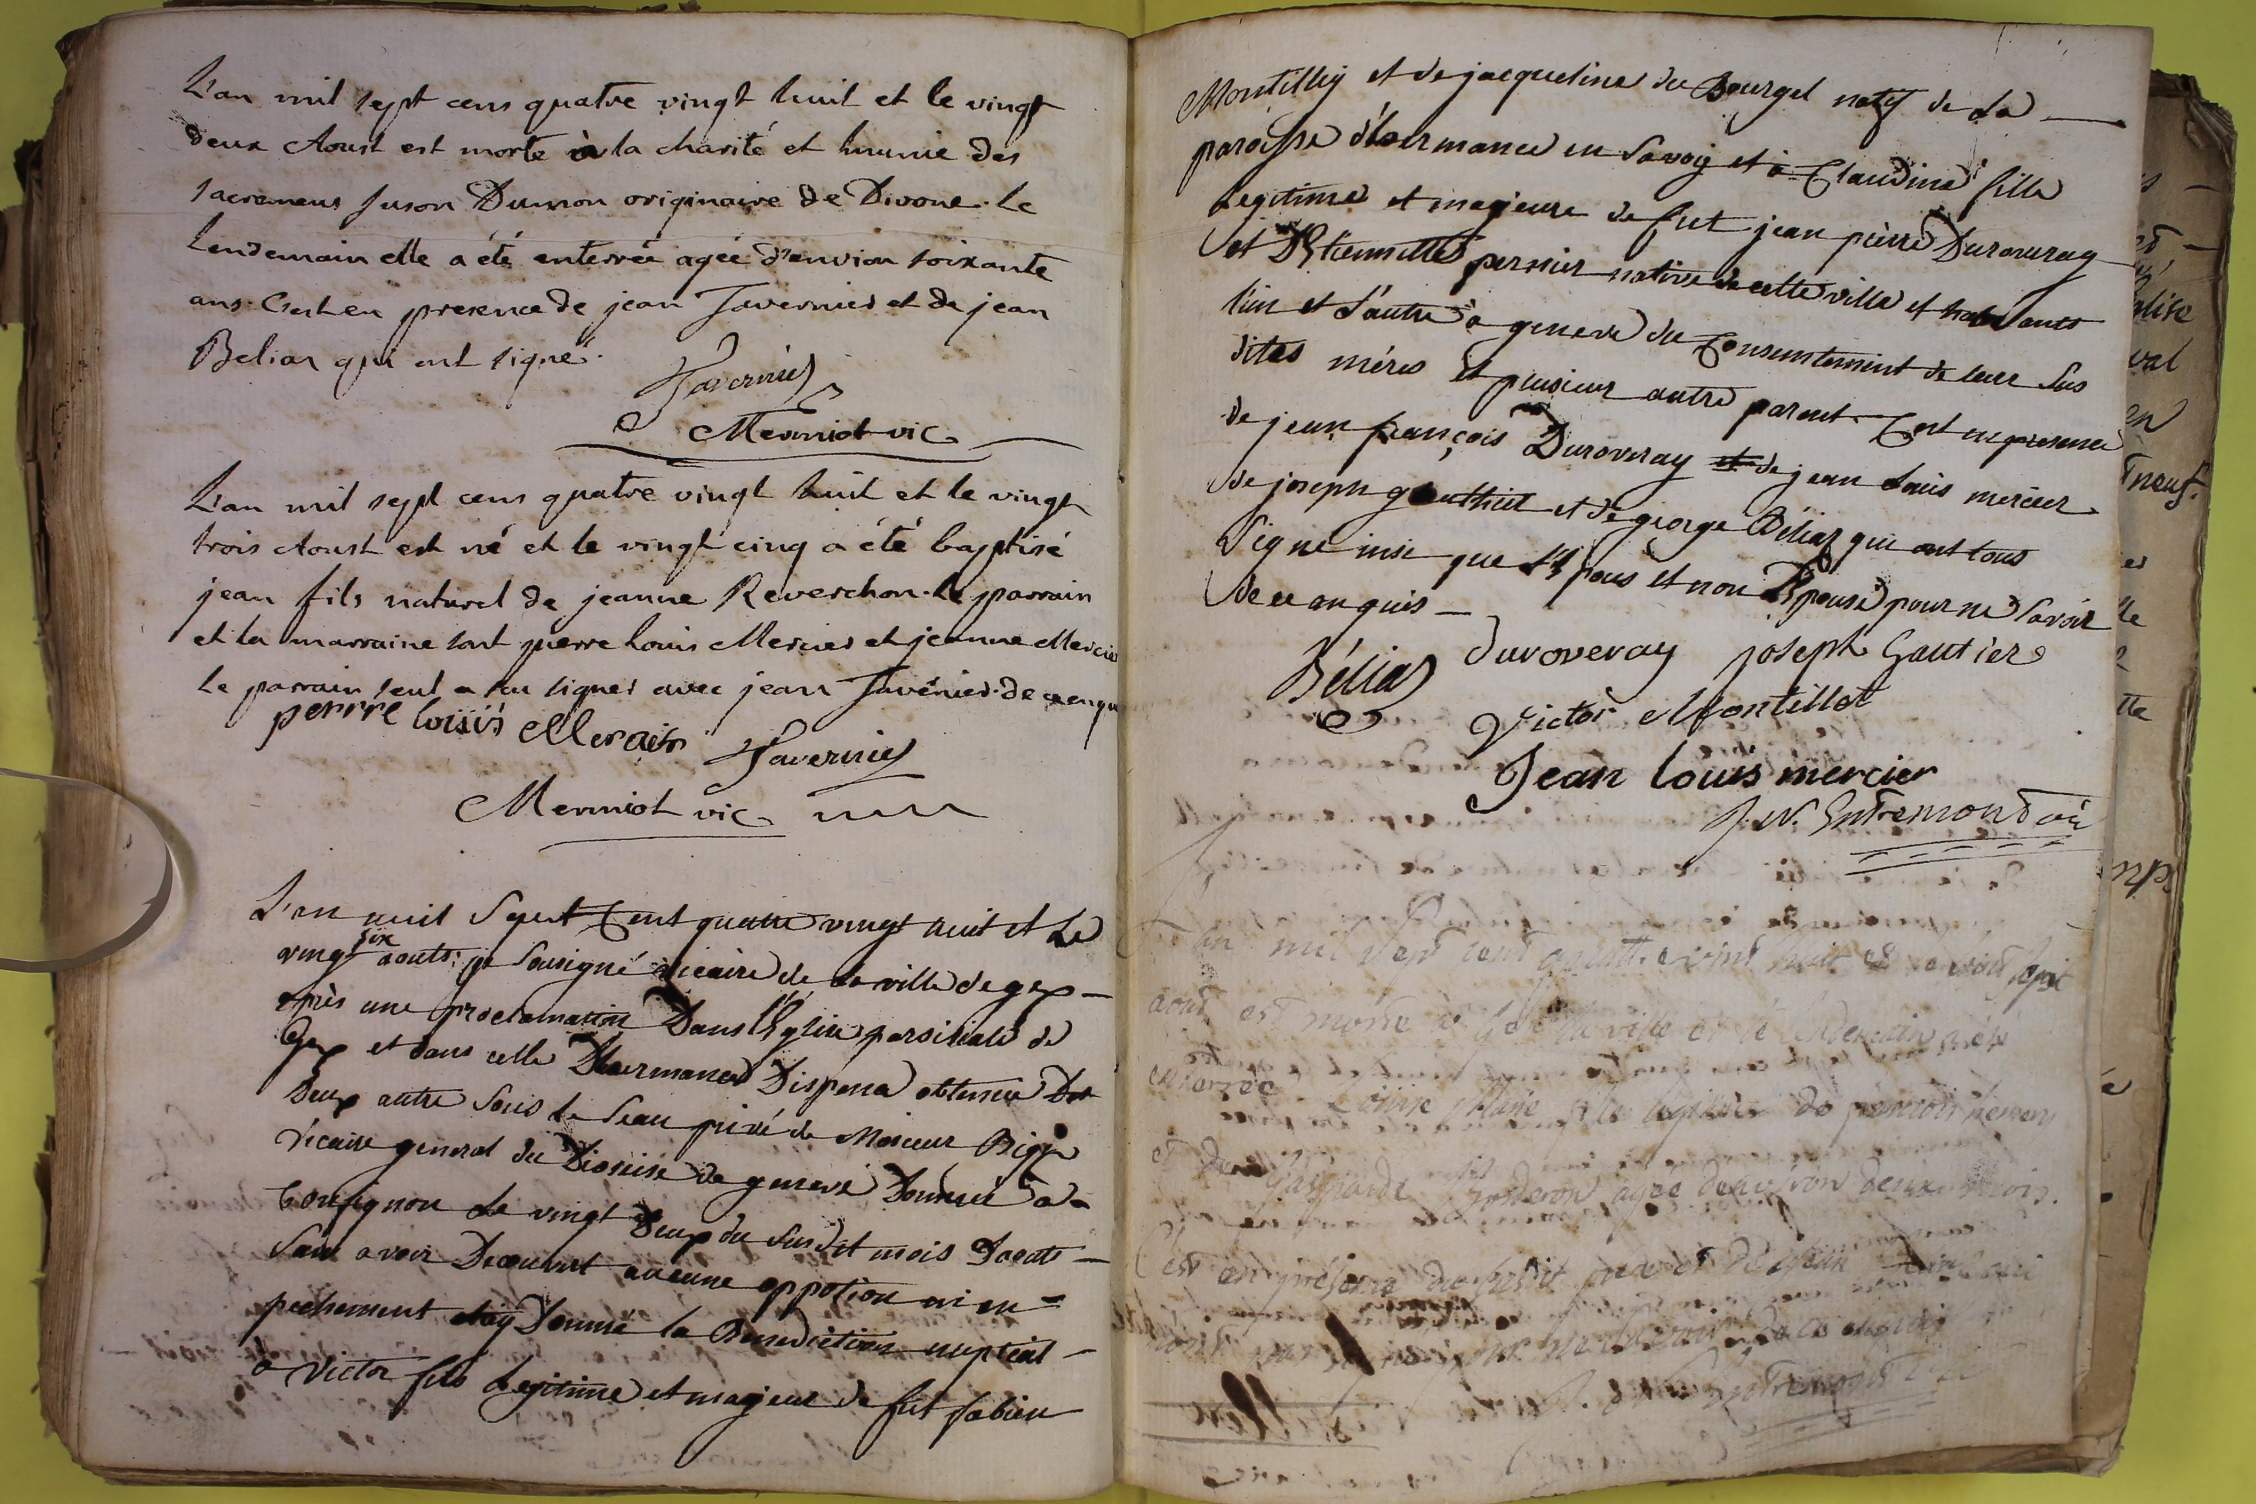 L'an mil sept cens quatre vingt huit et le vingt
deux Aoust est morte à la charité et munie des
sacremens suson Dumon originaire de Divone. Le
Lendemain elle a été enterrée agée d'envion soixante
ans. C'est en presence de jean Tavernier et de jean
Beliar qui ont signé.
Tavernier
Mermiot vic
L'an mil sept cens quatre vingt huit et le vingt
trois Aoust est né et le vingt cinq a été baptisé
jean fils naturel de jeanne Reverchon. Le parrain
et la marraine sont pierre louis Mercier et jeanne Mercier
Le parrain seul a su signer avec jean Tavernier. de ce enqu
perrre loisis Mercier
Tavernier
Mermiot vic
L'an mil sept Cent quattre vingt huit et Le
vingt six aouts. je sousigné vicaire de La ville de gex
après une proclamation Dans l'Eglise paroiciale de
Gex et dans celle D'hermance Dispensa obtenue Des
Deux autre sous le seau privé de Monsieur Bigex
vicaire general du Diosése de geneve Donnée à
Confignon Le vingt Deux du susdit mois Daouts
sans avoir Decouvert aucune oppotion ni en-
pechement ay Donné la Benediction nuptial
à victor fils Legitime et majeur de fut fabien
Montilliy et de jacqueline du Bourgel natif de La
paroisse d'hermance en Savoiy et à Claudine fille
Legitime et majeure de fut jean pierre Duroveray
et D'Etiennette pernier native de cette ville et habitants
l'un et L'autre à geneve du Consentement de leur sus
dites méres et plusieur autre parent. C'est en presence
de jean françois Duroveray et de jean Louis mercier
de joseph gauthier et de george Béliar qui ont tous
signé insi que L'Epous et non L'Epouse pour ne savoir
de ce anquis
Béliar
duroveray
joseph Gautier
Victor Montillet
Jean louis mercier
J. N. Entremond vic
L'an mil sept cent quattre vint huit et le vint sept
aout est morte à Gex la ville et le Lendemain a été
enterrée Louise Marie fille legitime de
et de Gasparde agée denviron deux mois.
C'est en présence du susdit pere et de jean